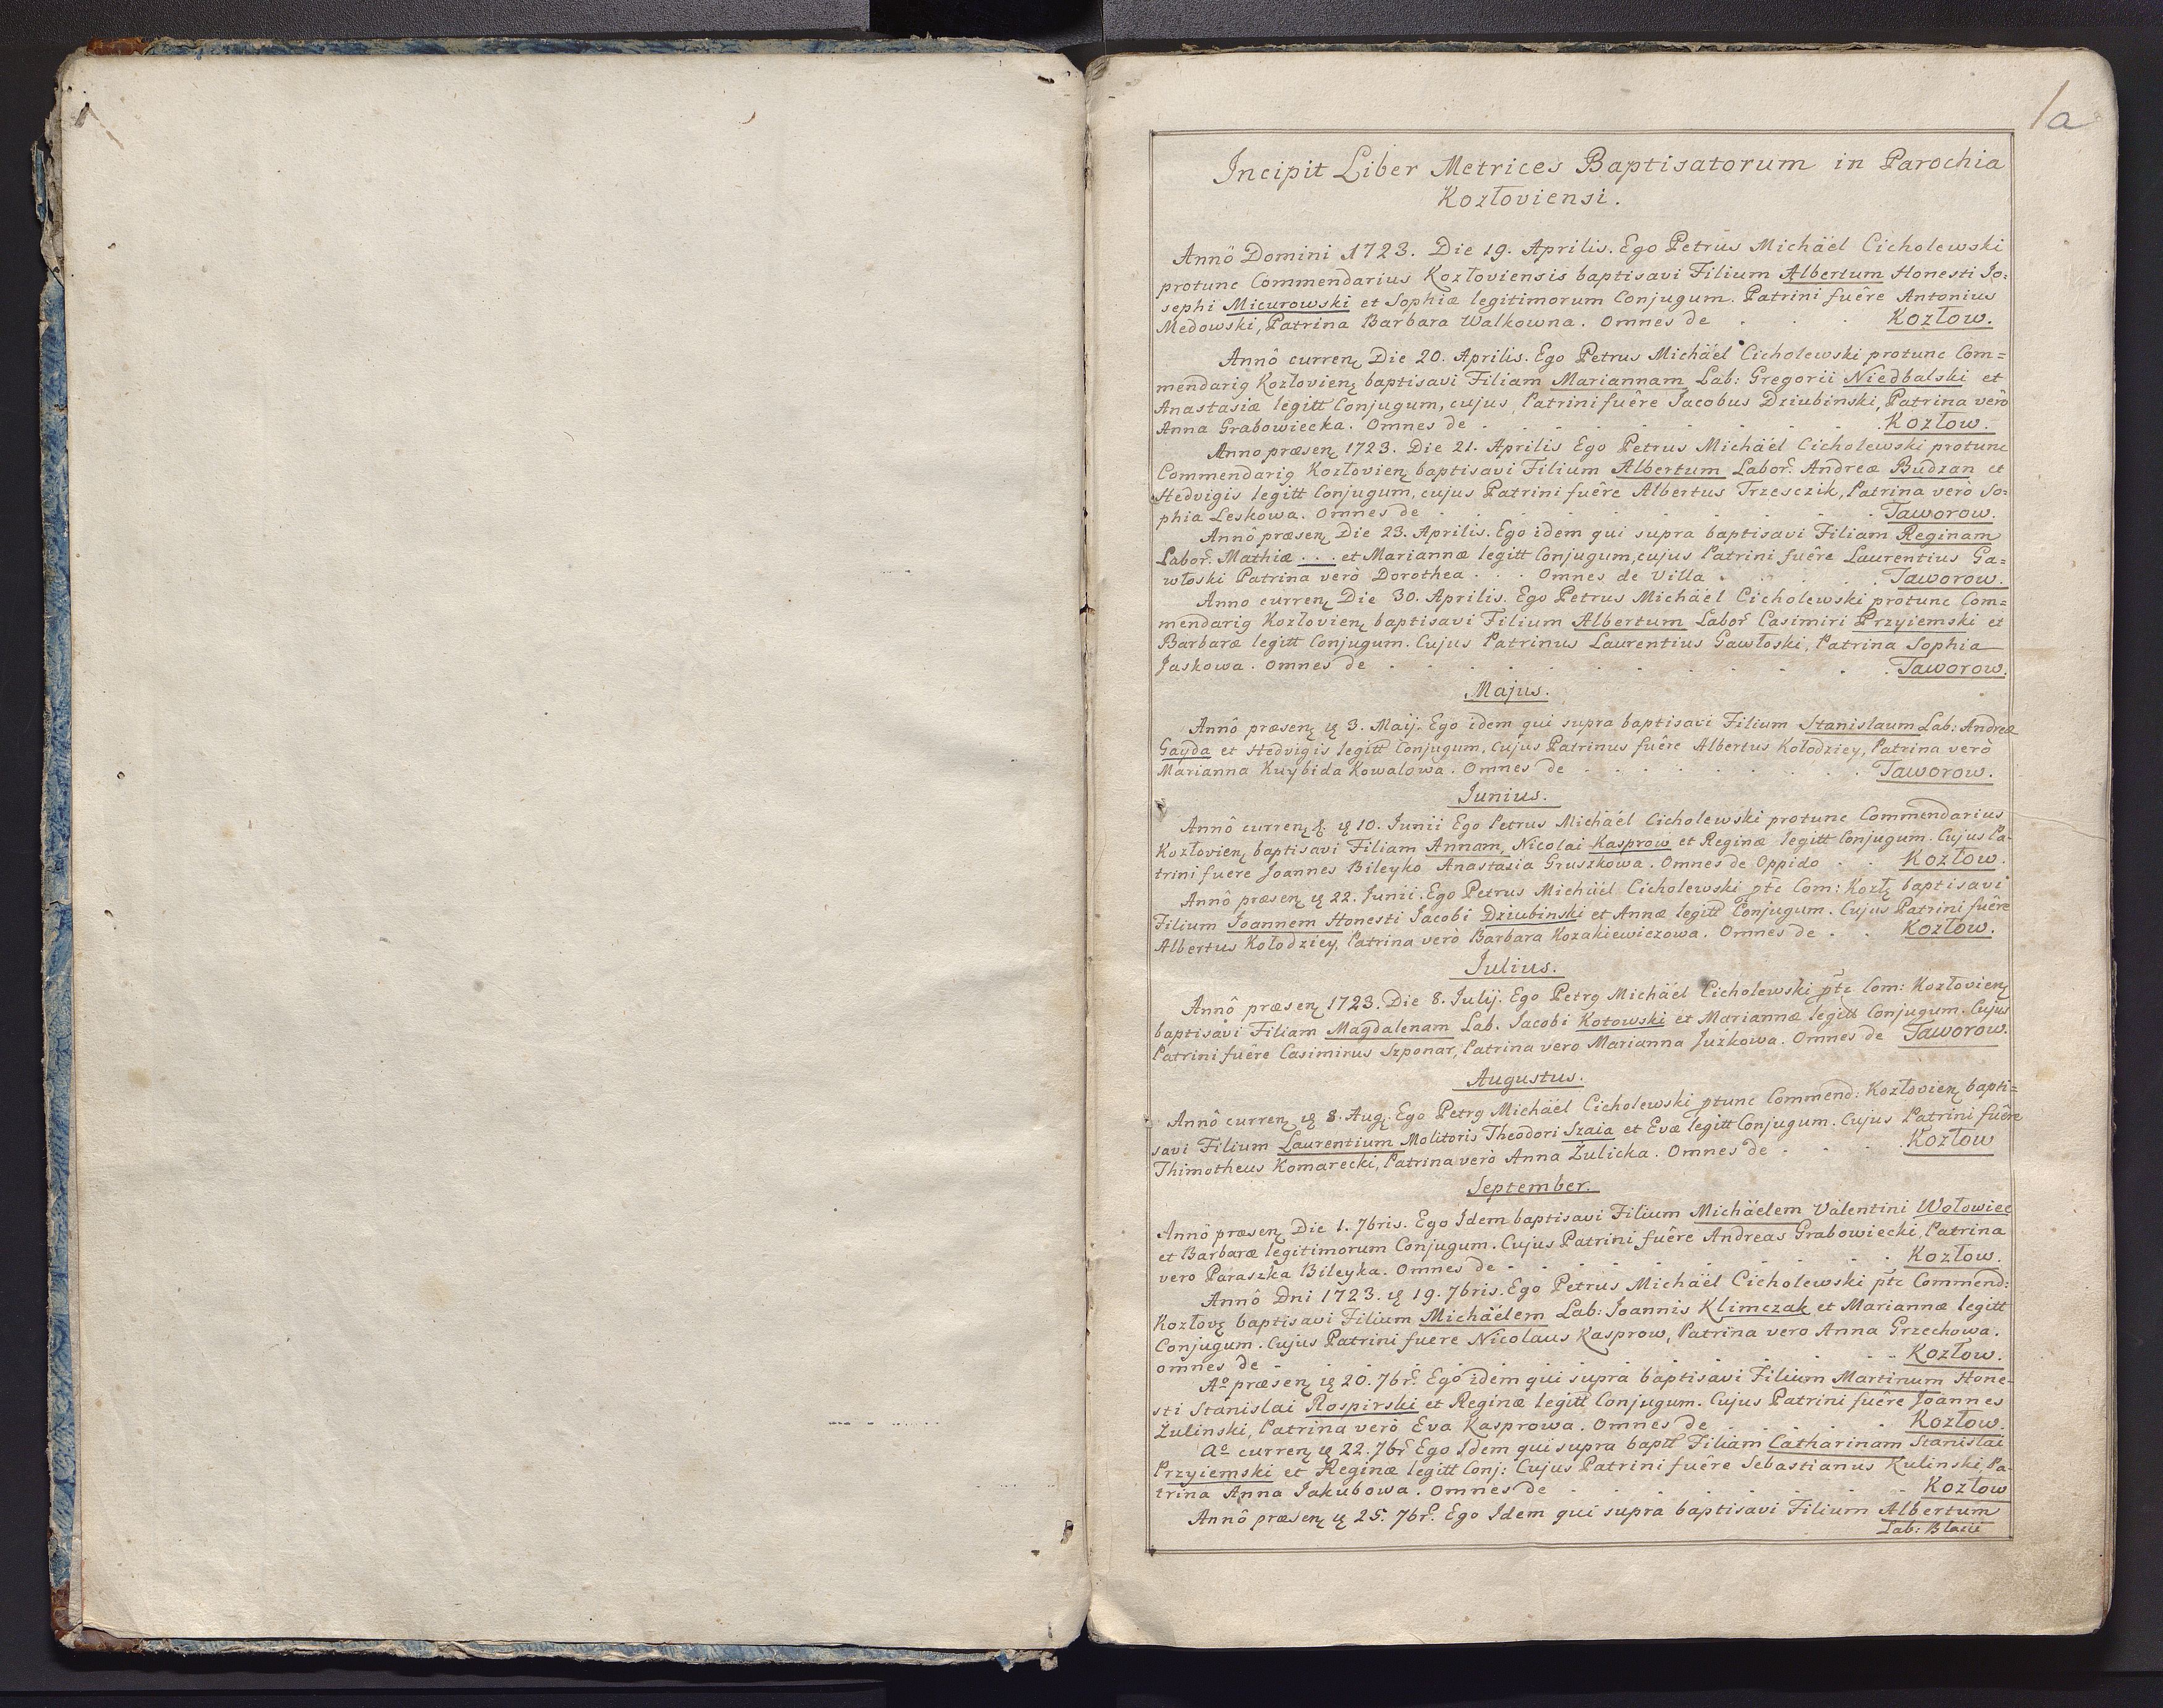 1a
Incipit Liber Metrices Baptisatorum in Parochia
Kozłoviensi.
Annô Domini 1723. Die 19. Aprilis. Ego Petrus Michäel Cicholewski
protunc Commendarius Kozłoviensis baptisavi Filium Albertum Honesti Jo=
sephi Micurowski et Sophiæ legitimorum Conjugum. Patrini fuêre Antonius
Medowski, Patrina Barbara Walkowna. Omnes de . . . Kozłow.
Annô currenꝭ Die 20. Aprilis. Ego Petrus Michäel Cicholewski protunc Com=
mendariꝯ Kozłovienꝭ baptisavi Filiam Mariannam Lab: Gregorii Niedbalski et
Anastasiæ legitt Conjugum, cujus Patrini fuêre Jacobus Dziubinski, Patrina verò
Anna Grabowiecka. Omnes de . . . Kozłow.
Anno præsenꝭ 1723. Die 21. Aprilis Ego Petrus Michäel Cicholewski protunc
Commendariꝯ Kozłovienꝭ baptisavi Filium Albertum Labor. Andreæ Budzan et
Hedvigis legitt Conjugum, cujus Patrini fuêre Albertus Trzesczik, Patrina verò So=
phia Leskowa. Omnes de . . . Taworow.
Annô præsenꝭ Die 23. Aprilis. Ego idem qui supra baptisavi Filiam Reginam
Labor. Mathiæ . . . et Mariannæ legitt Conjugum, cujus Patrini fuêre Laurentius Ga=
włoski Patrina verò Dorothea . . . Omnes de Villa . . . Taworow.
Anno currenꝭ Die 30. Aprilis. Ego Petrus Michäel Cicholewski protunc Com=
mendariꝯ Kozłovienꝭ baptisavi Filium Albertum Labor Casimiri Przyiemski et
Barbaræ legitt Conjugum. Cujus Patrinus Laurentius Gawłoski, Patrina Sophia
Jaskowa. Omnes de . . . Taworow.
Majus.
Annô præsenꝭ ꝭ 3. Maij. Ego idem qui supra baptisavi Filium Stanislaum Lab: Andreæ
Gayda et Hedvigis legitt Conjugum, Cujus Patrinus fuêre Albertus Kołodziey, Patrina verò
Marianna Kuybida Kowalowa. Omnes de . . . Taworow.
Junius.
Annô currenꝭ 10. Junii Ego Petrus Michäel Cicholewski protunc Commendarius
Kozłovienꝭ baptisavi Filiam Annam, Nicolai Kasprow et Reginæ legitt Conjugum. Cujus Pa-
trini fuere Joannes Bileyko Anastasia Gruszkowa. Omnes de Oppido . . Kozłow.
Annô præsenꝭ 22. Junii. Ego Petrus Michäel Cicholewski ptc Com: Kozłꝭ baptisavi
Filium Joannem Honesti Jacobi Dziubinski et Annæ legitt Conjugum. Cujus Patrini fuêre
Albertus Kołodziey, Patrina verò Barbara Kozakiewiczowa. Omnes de . . Kozłow.
Julius.
Annô præsenꝭ 1723. Die 8. Julij. Ego Petrꝯ Michäel Cicholewski ptc Com: Kozłovienꝭ
baptisavi Filiam Magdalenam Lab. Jacobi Kotowski et Mariannæ legitt Conjugum. Cujus
Patrini fuêre Casimirus Szponar, Patrina vero Marianna Juzkowa. Omnes de Taworow.
Augustus.
Annô currenꝭ 8. Augꝭ. Ego Petrꝯ Michäel Cicholewski ptunc Commend: Kozłovienꝭ bapti=
savi Filium Laurentium Molitoris Theodori Szaia et Evæ legitt Conjugum. Cujus Patrini fuêre
Thimotheus Komarecki, Patrina verò Anna Żulicka. Omnes de . . . Kozłow
September.
Annô præsenꝭ Die 1. 7bris. Ego Idem baptisavi Filium Michäelem Valentini Wołowiec
et Barbaræ legitimorum Conjugum. Cujus Patrini fuêre Andreas Grabowiecki, Patrina
vero Paraszka Bileyka. Omnes de . . . Kozłow.
Annô Dni 1723. 19. 7bris. Ego Petrus Michäel Cicholewski ptc Commend:
Kozłovꝭ baptisavi Filium Michäelem Lab: Joannis Klimczak et Mariannæ legitt
Conjugum. Cujus Patrini fuere Nicolaus Kasprow, Patrina vero Anna Grzechowa.
omnes de . . . Kozłow.
Aº præsenꝭ 20. 7br. Ego idem qui supra baptisavi Filium Martinum Hone-
sti Stanislai Rospirski et Reginæ legitt Conjugum. Cujus Patrini fuêre Joannes
Żulinski, Patrina verò Eva Kasprowa. Omnes de . . . Kozłow.
Aº currenꝭ 22. 7br Ego Idem qui supra baptt Filiam Catharinam Stanislai
Przyiemski et Reginæ legitt Conj: Cujus Patrini fuêre Sebastianus Kulinski, Pa-
trina Anna Jakubowa. Omnes de . . . Kozłow
Annô præsenꝭ 25. 7br. Ego Idem qui supra baptisavi Filium Albertum
Lab: Blasii